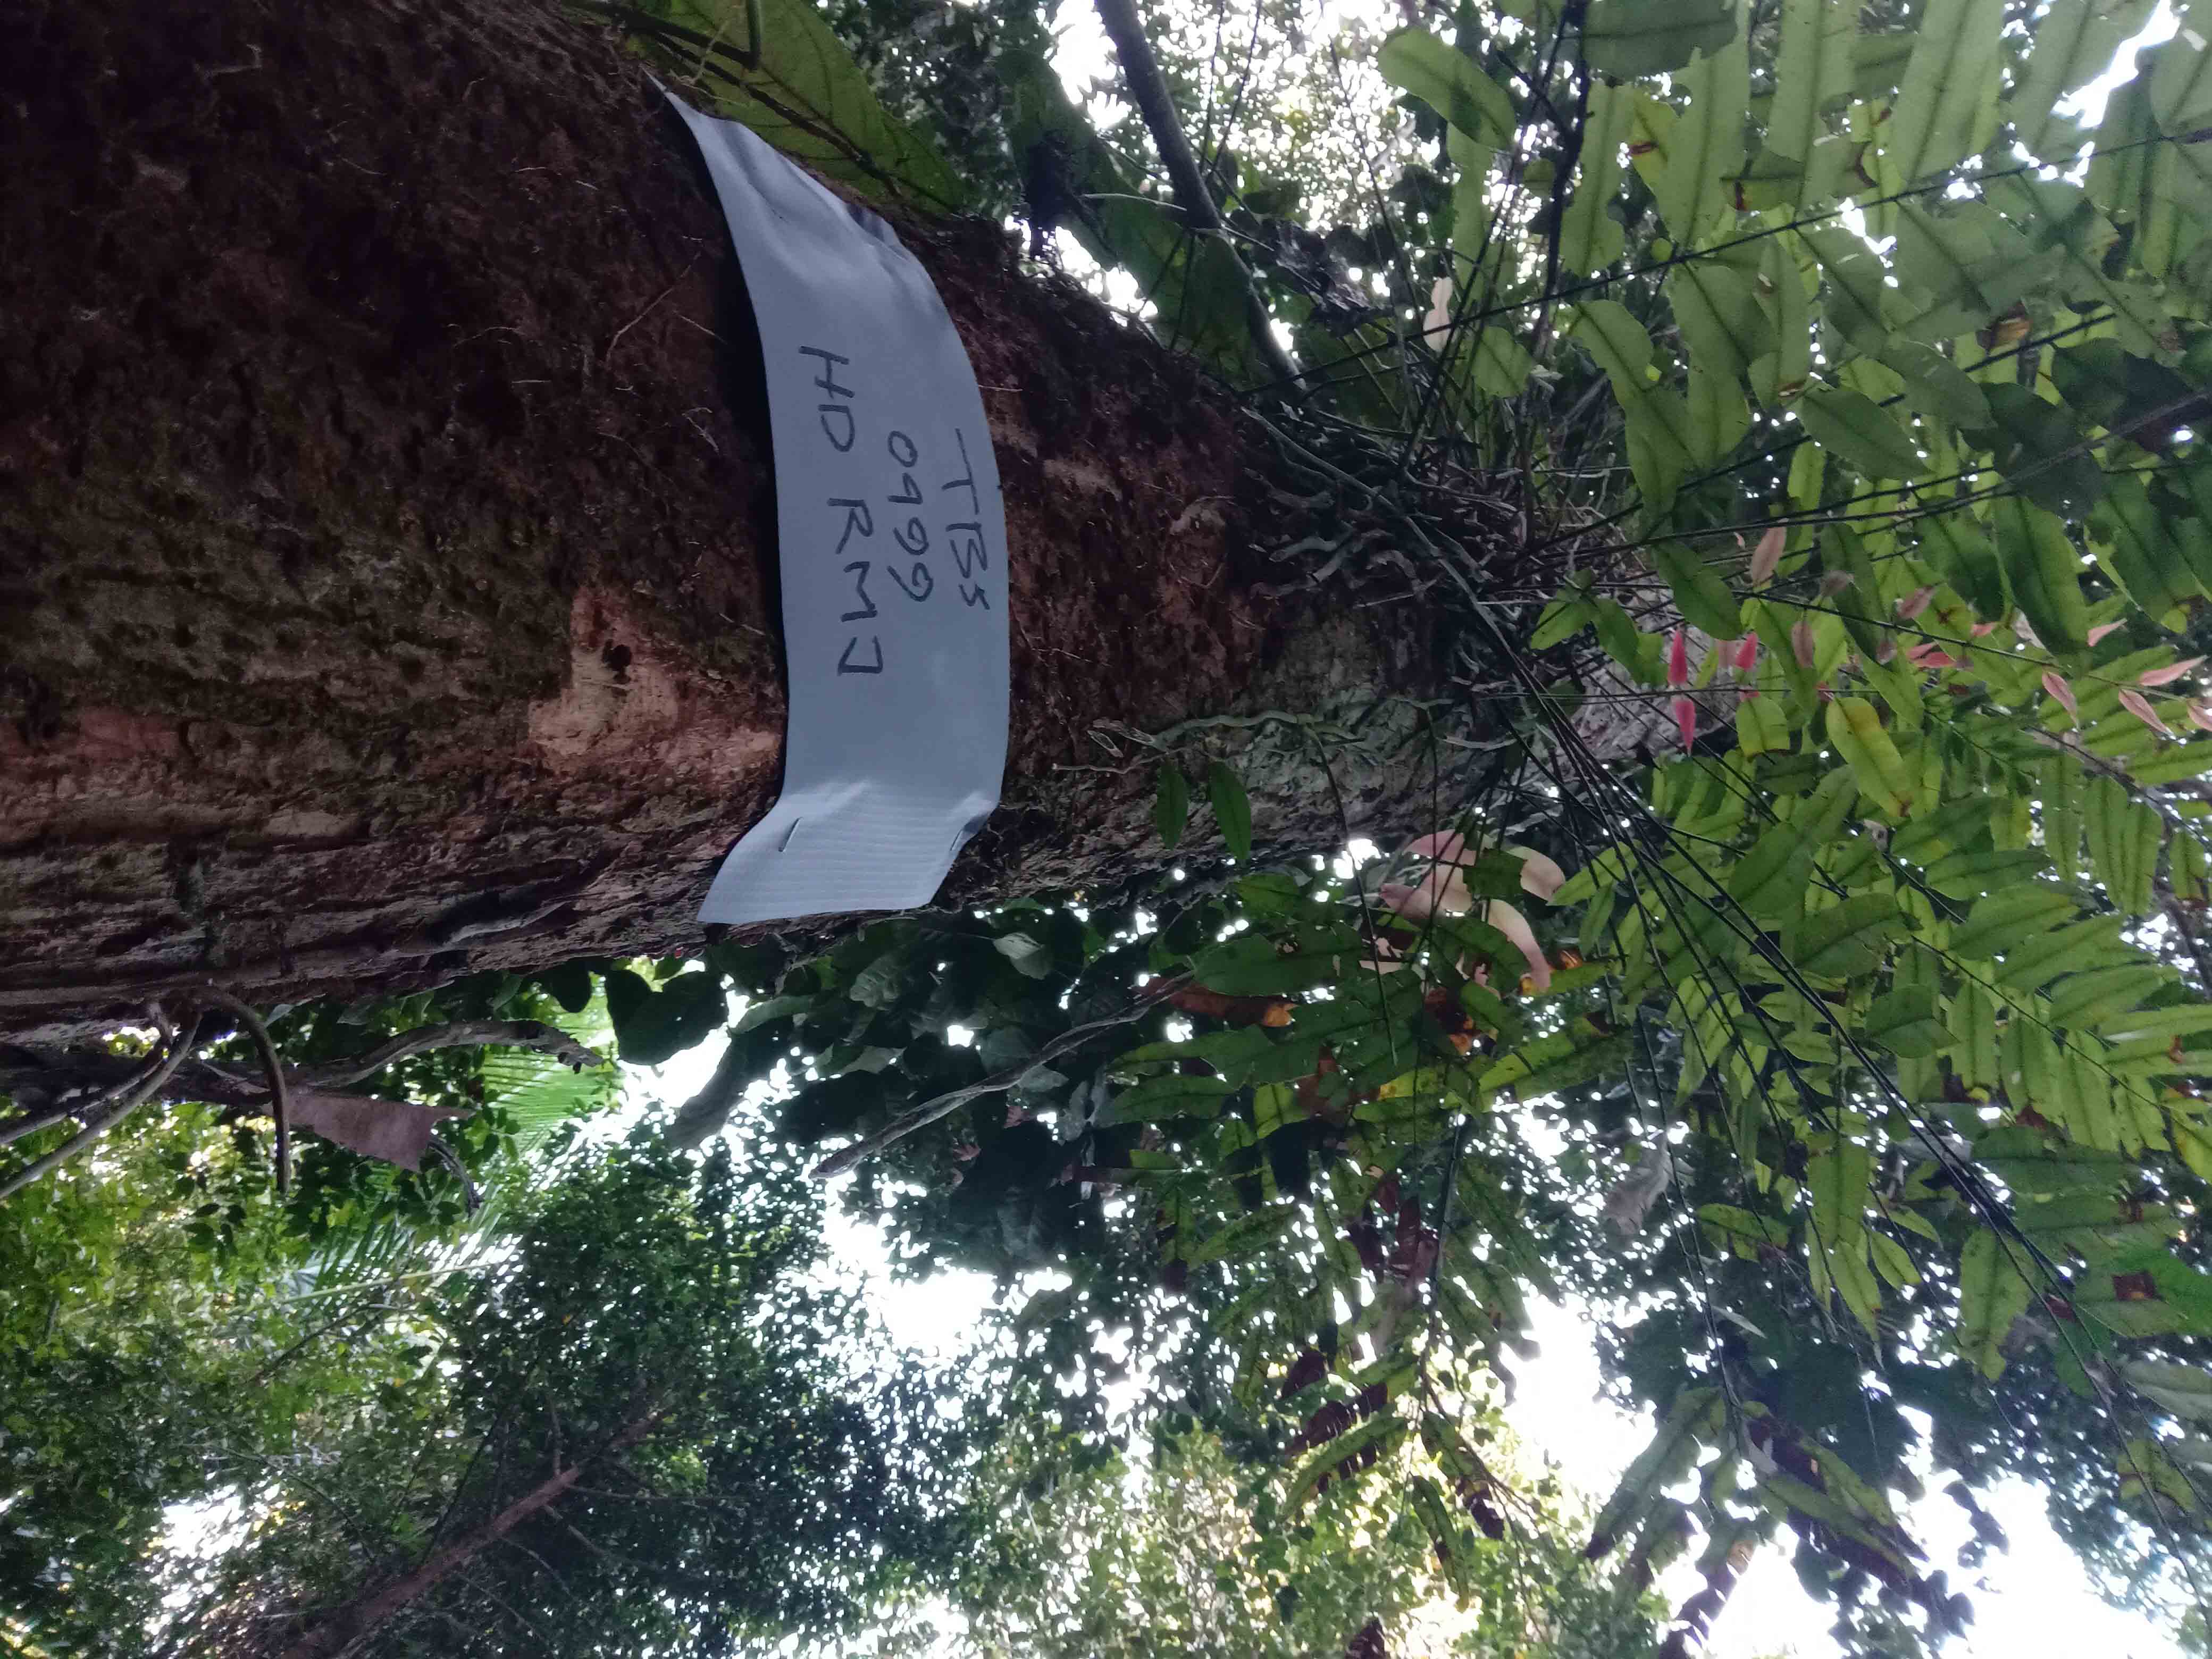 TBS
0999
HD RMJ